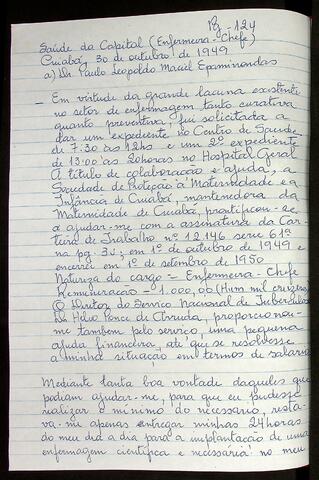 Pg - 124
Saúde da Capital (Enfermeira-Chefe)
Cuiabá, 30 de outubro de 1949
a) Dr Paulo Leopoldo Maciel Epaminondas
- Em virtude da grande lacuna existente
no setor de enfermagem tanto curativa
quanto preventiva, fui solicitada a
dar um expediente no Centro de Saúde
de 7:30 às 12hs e um 2º expediente
de 13:00 às 20 horas no Hospital Geral
À título de colaboração e ajuda, a
Sociedade de Proteção à Maternidade e a
Infância de Cuiabá, mantenedora da
Maternidade de Cuiabá, prontificou-se
a ajudar-me com a assinatura da Car-
teira de Trabalho nº 12.146 serie 61ª
na pg. 3; em 1º de outubro de 1949 e
encerrei em 1º de setembro de 1950
Natureza do cargo = Enfermeira-Chefe
Remuneração - 1.000,00 (Hum mil cruzeiros)
O Diretor do Serviço Nacional de Tuberculose
Dr Hélio Ponce de Arruda, proporcionou-
me também pelo serviço, uma pequena
ajuda financeira, até que se resolvesse
a minha situação em termos de salário
Mediante tanta boa vontade daqueles que
podiam ajudar-me, para que eu pudesse
realizar o mínimo do necessário, resta-
va-me apenas entregar minhas 24 horas
do meu dia a dia para a implantação de uma
enfermagem científica e necessária no meu